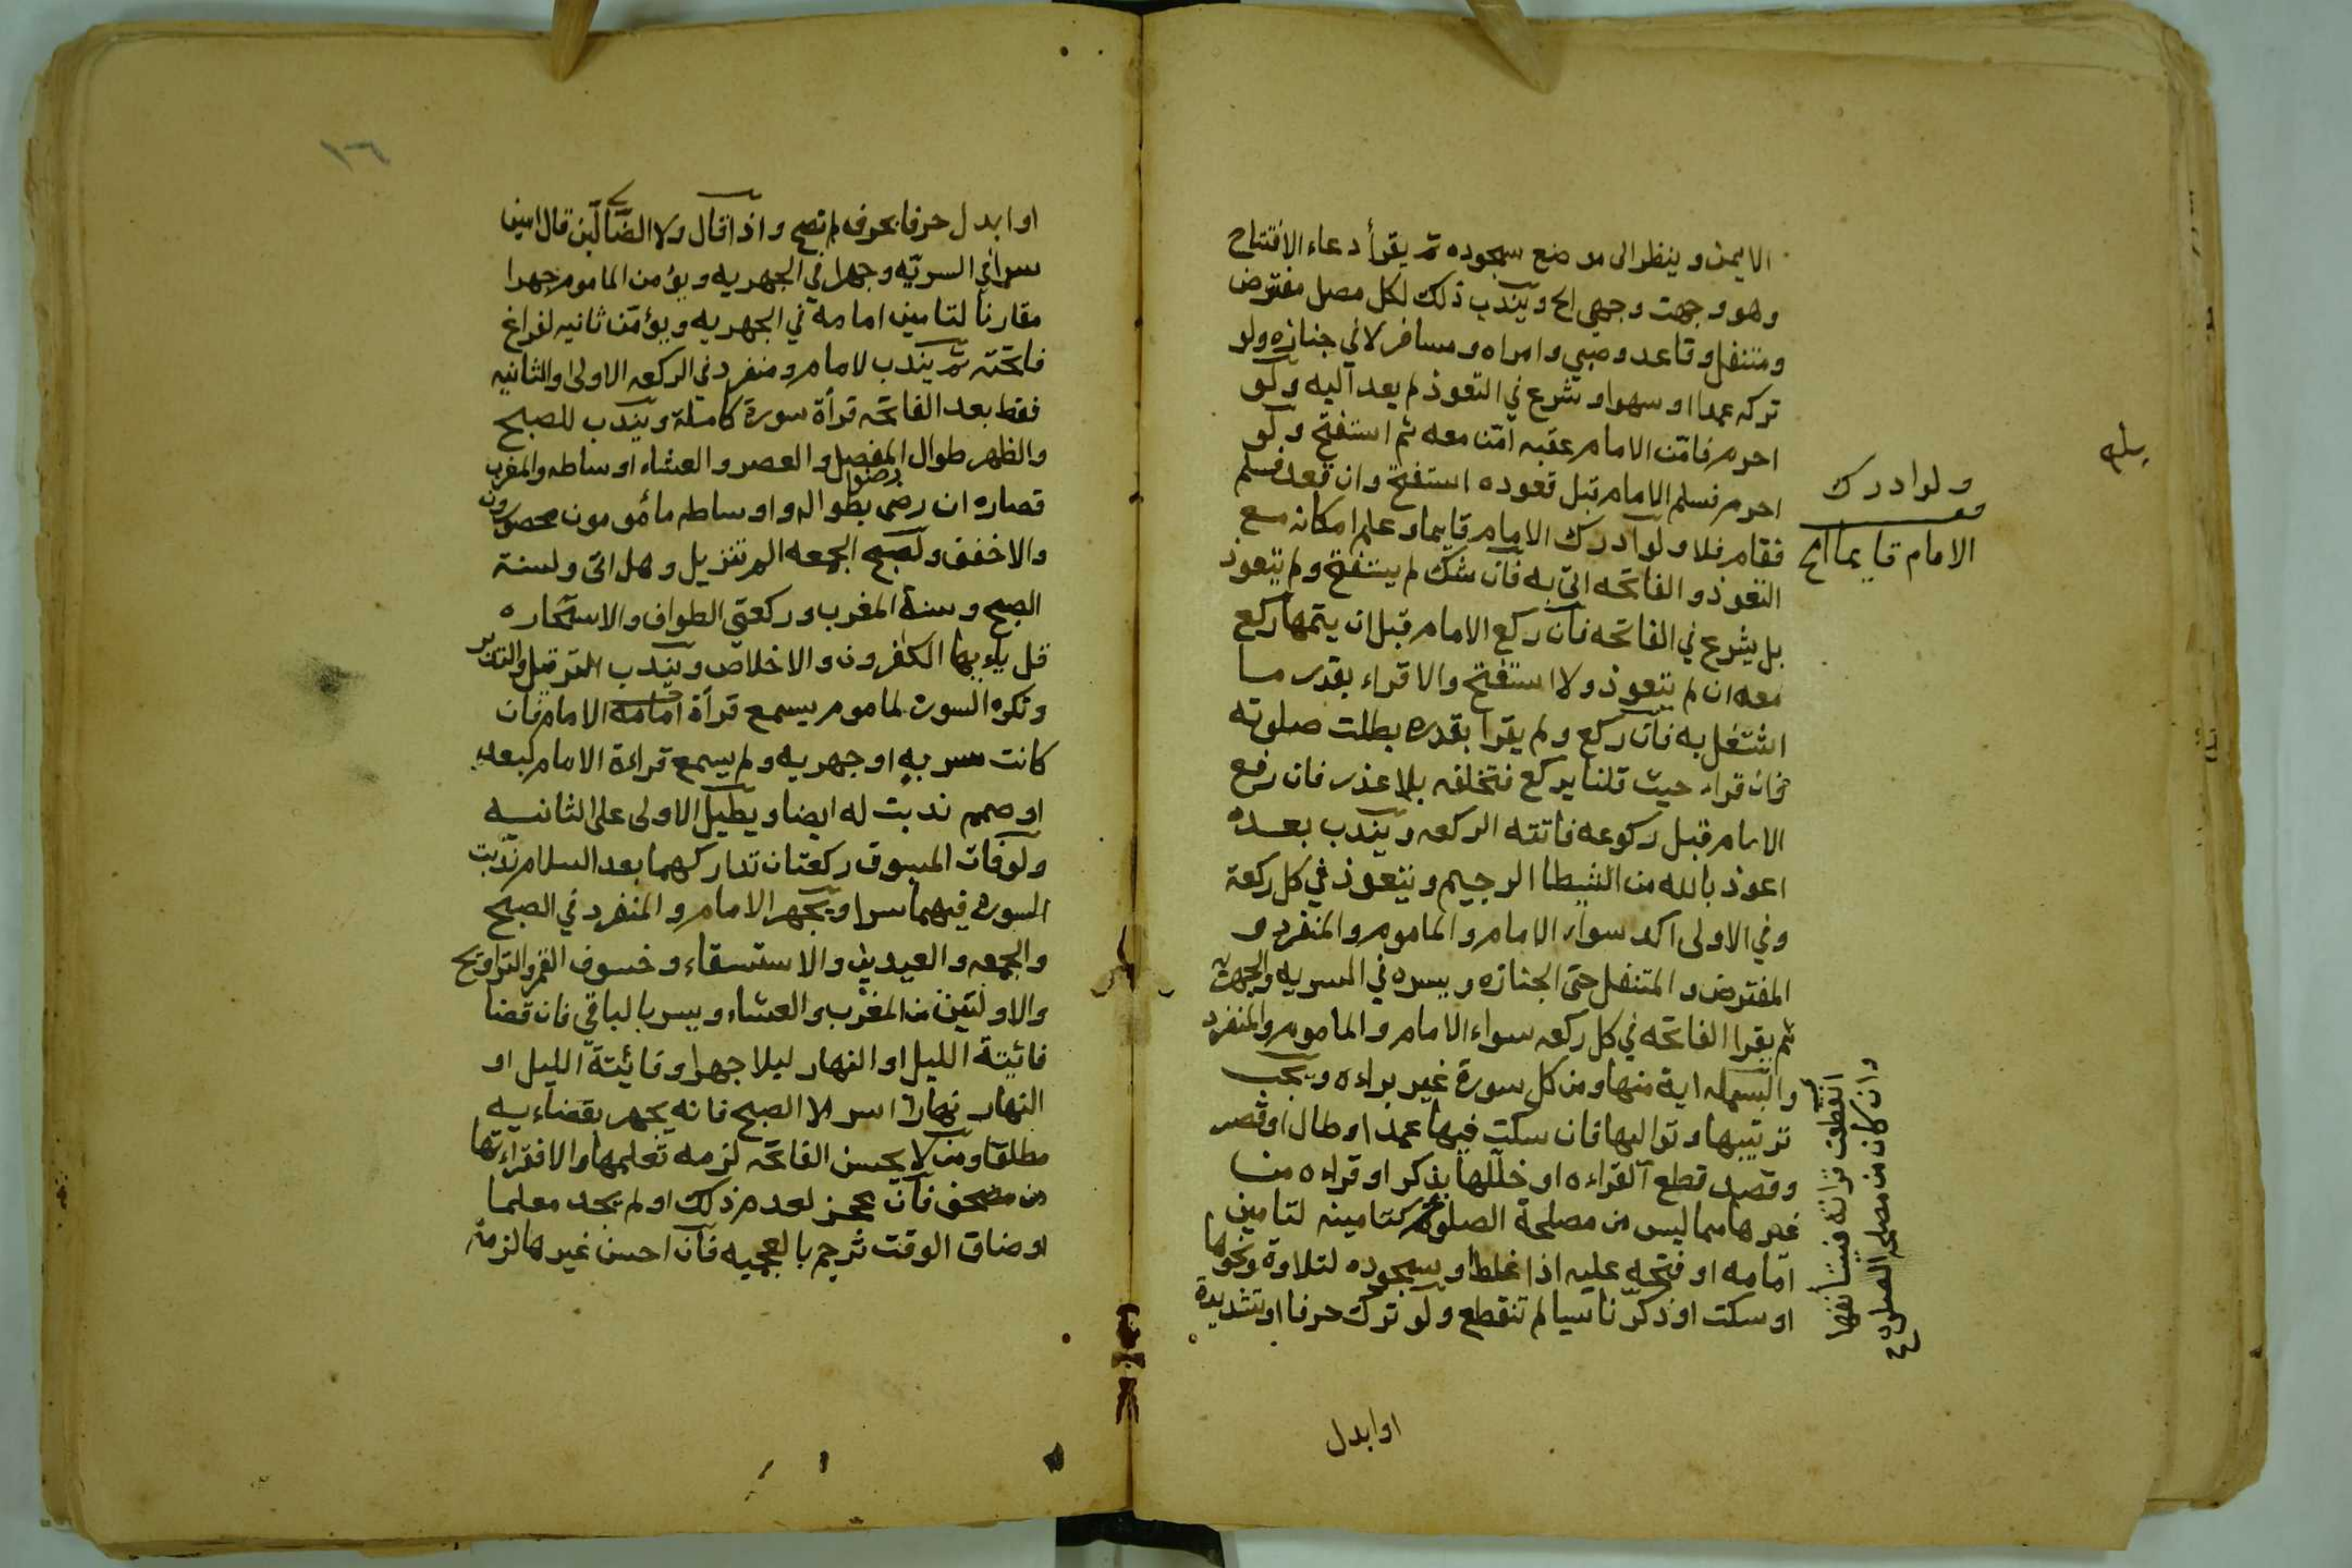 الايمن وينظر الى موضع سجوده ثم يقرأ دعاء الافتتاح
وهو وجهت وجهي الخ ويندب ذلك لكل مصل مفترض
ومتنفل وقاعد وصبي وامراه ومسافر لا في جنازه ولو
تركه عمدا او سهوا وشرع في التعوذ لم يعد اليه ولو
احرم فامن الامام عقبه امن معه ثم استفتح ولو
احرم فسلم الامام قبل قعوده استفتح وان قعد فسلم
فقام فلا ولو ادرك الامام قايما وعلم امكانه مع
التعوذ والفاتحه اتى به فان شك لم يستفتح ولم يتعوذ
بل يشرع في الفاتحه فان ركع الامام قبل ان يتمها ركع
معه ان لم يتعوذ ولا استفتح والا قراء بقدر ما
اشتغل به فان ركع ولم يقرا بقدره بطلت صلوته
وان قراء حيث قلنا يركع فتخلف بلا عذر فان رفع
الامام قبل ركوعه فاتته الركعه ويندب بعده
اعوذ بالله من الشيطا الرجيم ويتعوذ في كل ركعة
وفي الاولى اكد سواء الامام والماموم والمنفرد و
المفترض والمتنفل حتى الجنازه ويسره في السريه والجهريه
ثم يقرا الفاتحه في كل ركعه سواء الامام والماموم والمنفرد
والبسمله اية منها ومن كل سورة غير براءه ويجب
ترتيبها وتواليها فان سكت فيها عمدا وطال او قصر
وقصد قطع القراءه او خللها بذكر او قراءه من
غيرها مما ليس من مصلحة الصلوة كتامينه لتامين
امامه او فتحه عليه اذا غلط او سجوده لتلاوة ونحوها
او سكت او ذكر ناسيا لم تنقطع ولو ترك حرفا او تشديدة
ولو ادرك
الامام قايما الخ
انقطعت قرائته فيستأنفها
وان كان من مصلحة الصلوة
او ابدل
١٦
او ابدل حرفا بحرف لم تصح واذا قال ولا الضالين قال امين
سرا في السريه وجهرا في الجهريه ويؤمن الماموم جهرا
مقارنا لتامين امامه في الجهريه ويؤمن ثانيه لفراغ
فاتحته ثم يندب لامام ومنفرد في الركعه الاولى والثانيه
فقط بعد الفاتحه قرأة سورة كاملة ويندب للصبح
والظهر طوال المفصل والعصر والعشاء اوساطه والمغرب
قصاره ان رضى بطواله واوساطه مأمومون محصورون
والا خفف ولصبح الجمعه الم تنزيل وهل اتى ولسنة
الصبح وسنة المغرب وركعتي الطواف والاستخاره
قل يايها الكفرون والاخلاص ويندب الترتيل والتدبر
وتكره السوره لماموم يسمع قرأة امامه الامام فان
كانت سريه او جهريه ولم يسمع قراءة الامام لبعد
او صمم ندبت له ايضا ويطيل الاولى على الثانيه
ولو فات المسبوق ركعتان تداركهما بعد السلام ندبت
السوره فيهما سرا ويجهر الامام والمنفرد في الصبح
والجمعه والعيدين والاستسقاء وخسوف القمر والتراويح
والاولتين من المغرب والعشاء ويسر بالباقي فان قضا
فائيتة الليل او النهار ليلا جهر او فائيتة الليل او
النهار نهارا اسر الا الصبح فانه يجهر بقضاءيه
مطلقا ومن لا يحسن الفاتحه لزمه تعلمها والا فقراءتها
من مصحف فان عجز لعدم ذلك او لم يجد معلما
او ضاق الوقت ثرجم بالعجميه فان احسن غيرها لزمه